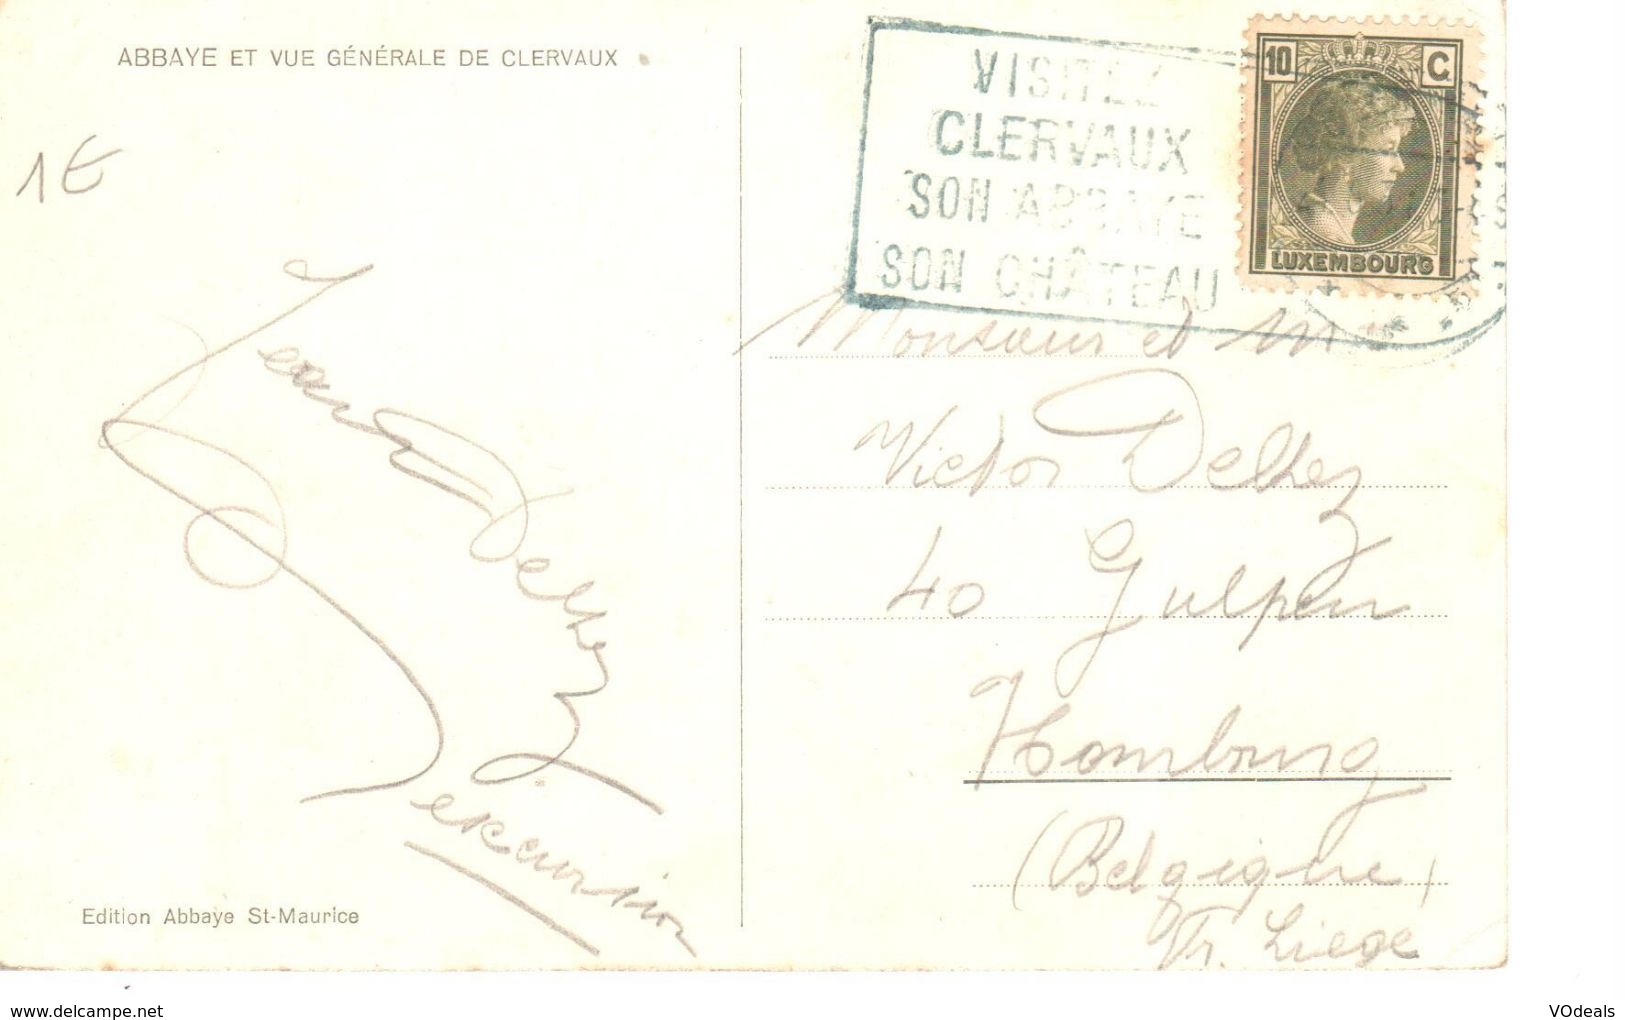 ABBAYE ET VUE GÉNÉRALE DE CLERVAUX
1€
VISITEZ
CLERVAUX
SON ABBAYE
SON CHÂTEAU
10 C.
LUXEMBOURG
Jean Delhez
excursion
Monsieur et M
Victor Delhez
40 Gulpen
Hombourg
(Belgique)
Pr. Liege
Edition Abbaye St-Maurice
www.delcampe.net
VOdeals